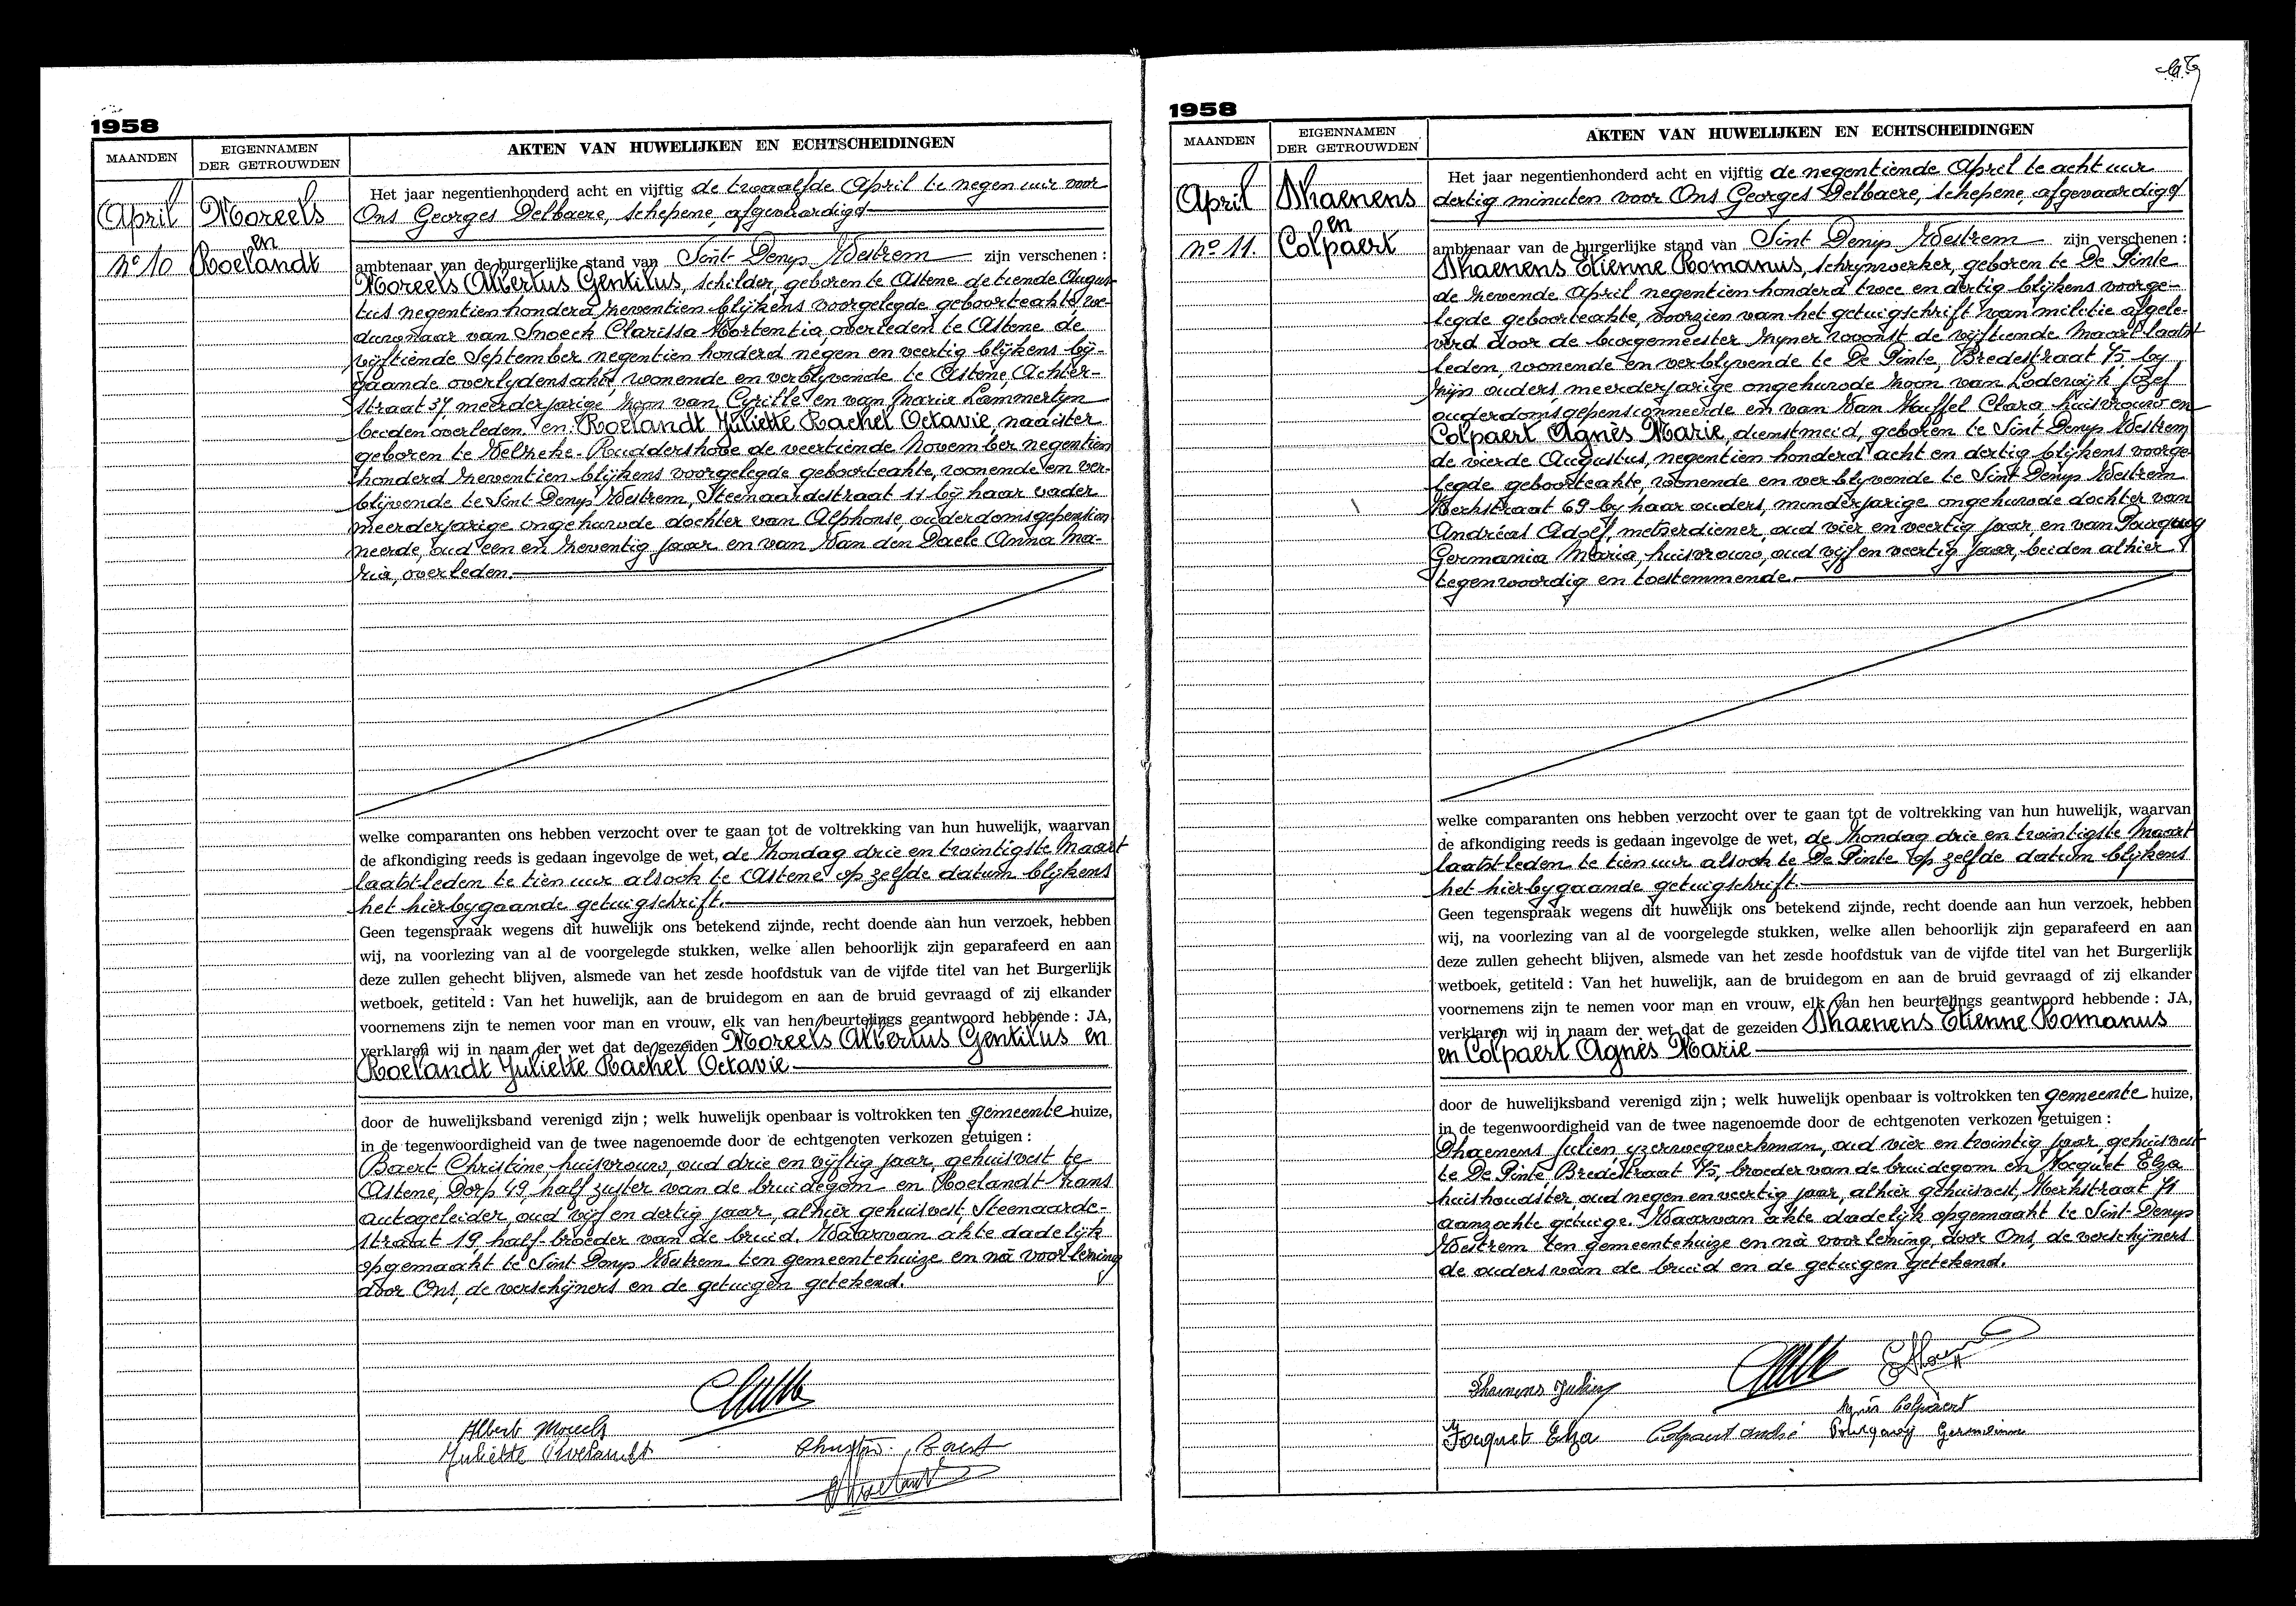 1958
MAANDEN
EIGENNAMEN
DER GETROUWDEN
AKTEN VAN HUWELIJKEN EN ECHTSCHEIDINGEN
April
Moreels
en
n° 10
Roelandt
Het jaar negentienhonderd acht en vijftig de twaalfde April te negen uur voor
Ons Georges Delbaere, schepene, afgevaardigd
ambtenaar van de burgerlijke stand van Sint Denys Westrem zijn verschenen :
Moreels Albertus Gentilus, schilder, geboren te Astene de tiende Augus-
tus negentien honderd zeventien blijkens voorgelegde geboorteakte, we-
duwnaar van Snoeck Clarissa Hortentia, overleden te Astene de
vijftiende September negentien honderd negen en veertig blijkens bij-
gaande overlydensakte, wonende en verblyvende te Astene, Achter-
straat 37, meerderjarige zoon van Cyrille en van Maria Lammertyn
beiden overleden. en: Roelandt Juliette Rachel Octavie, naaister
geboren te Velzeke-Ruddershove de veertiende November negentien
honderd zeventien blijkens voorgelegde geboorteakte, wonende en ver-
blijvende te Sint Denys Westrem, Steenaardestraat 11 bij haar vader
meerderjarige ongehuwde dochter van Alphonse, ouderdomsgepension
neerde, oud een en zeventig jaar en van Van den Daele Anna Ma-
ria, overleden.
welke comparanten ons hebben verzocht over te gaan tot de voltrekking van hun huwelijk, waarvan
de afkondiging reeds is gedaan ingevolge de wet, de zondag drie en twintigste Maart
laatstleden te tien uur alsook te Astene op zelfde datum blijkens
het hierbygaande getuigschrift.
Geen tegenspraak wegens dit huwelijk ons betekend zijnde, recht doende aan hun verzoek, hebben
wij, na voorlezing van al de voorgelegde stukken, welke allen behoorlijk zijn geparafeerd en aan
deze zullen gehecht blijven, alsmede van het zesde hoofdstuk van de vijfde titel van het Burgerlijk
wetboek, getiteld : Van het huwelijk, aan de bruidegom en aan de bruid gevraagd of zij elkander
voornemens zijn te nemen voor man en vrouw, elk van hen beurtelings geantwoord hebbende : JA,
verklaren wij in naam der wet dat de gezeiden Moreels Albertus Gentilus en
Roelandt Juliette Rachel Octavie
door de huwelijksband verenigd zijn ; welk huwelijk openbaar is voltrokken ten gemeente huize,
in de tegenwoordigheid van de twee nagenoemde door de echtgenoten verkozen getuigen :
Baert Christine, huisvrouw, oud drie en vijftig jaar, gehuisvest te
Astene, Dorp 49, half zuster van de bruidegom en Roelandt Frans
autogeleider, oud vijf en dertig jaar, alhier gehuisvest, Steenaarde-
straat 19, half-broeder van de bruid. Waarvan akte dadelijk
opgemaakt te Sint Denys Westrem ten gemeentehuize en na voorlezing
door Ons, de verschijners en de getuigen getekend.
Albert Moreels
Juliette Roelandt
Baert
1958
MAANDEN
EIGENNAMEN
DER GETROUWDEN
AKTEN VAN HUWELIJKEN EN ECHTSCHEIDINGEN
April
Dhaenens
en
n° 11.
Colpaert
Het jaar negentienhonderd acht en vijftig de negentiende April te acht uur
dertig minuten voor Ons Georges Delbaere, schepene, afgevaardigd
ambtenaar van de burgerlijke stand van Sint Denys Westrem zijn verschenen :
Dhaenens Etienne Romanus, schrynwerker, geboren te De Pinte
de zevende April negentien honderd twee en dertig blijkens voorge-
legde geboorteakte, voorzien van het getuigschrift van militie afgele-
verd door de burgemeester zyner woonst de vijftiende Maart laatst
leden, wonende en verblyvende te De Pinte, Bredestraat 75 by
zijn ouders, meerderjarige ongehuwde zoon van Lodewijk Jozef
ouderdomsgepensionneerde en van Van Huffel Clara huisvrouw en
Colpaert Agnès Marie, dienstmeid, geboren te Sint Denys Westrem
de vierde Augustus, negentien honderd acht en dertig blijkens voorge-
legde geboorteakte, wonende en verblyvende te Sint Denys Westrem
Kerkstraat 69 by haar ouders, minderjarige ongehuwde dochter van
Andréas Adolf, metserdiener, oud vier en veertig jaar, en van Pourquoy
Germania Maria, huisvrouw, oud vyf en veertig jaar, beiden alhier
tegenwoordig en toestemmende.
welke comparanten ons hebben verzocht over te gaan tot de voltrekking van hun huwelijk, waarvan
de afkondiging reeds is gedaan ingevolge de wet, de zondag drie en twintigste Maart
laatstleden te tien uur alsook te De Pinte op zelfde datum blijkens
het hierbygaande getuigschrift.
Geen tegenspraak wegens dit huwelijk ons betekend zijnde, recht doende aan hun verzoek, hebben
wij, na voorlezing van al de voorgelegde stukken, welke allen behoorlijk zijn geparafeerd en aan
deze zullen gehecht blijven, alsmede van het zesde hoofdstuk van de vijfde titel van het Burgerlijk
wetboek, getiteld : Van het huwelijk, aan de bruidegom en aan de bruid gevraagd of zij elkander
voornemens zijn te nemen voor man en vrouw, elk van hen beurtelings geantwoord hebbende : JA,
verklaren wij in naam der wet dat de gezeiden Dhaenens Etienne Romanus
en Colpaert Agnès Marie
door de huwelijksband verenigd zijn ; welk huwelijk openbaar is voltrokken ten gemeente huize,
in de tegenwoordigheid van de twee nagenoemde door de echtgenoten verkozen getuigen :
Dhaenens Julien yzerwegwerkman, oud vier en twintig jaar, gehuisvest
te De Pinte Bredestraat 75, broeder van de bruidegom en Jocquet Elza
huishoudster, oud negen en veertig jaar, alhier gehuisvest, Kerkstraat 71
aanzochte getuige. Waarvan akte dadelijk opgemaakt te Sint-Denys
Westrem ten gemeentehuize en na voorlezing, door Ons, de verschijners
de ouders van de bruid en de getuigen getekend.
Dhaenens Julien
Agnès Colpaert
Jocquet Elza Colpaert andré Pourquoy Germaine